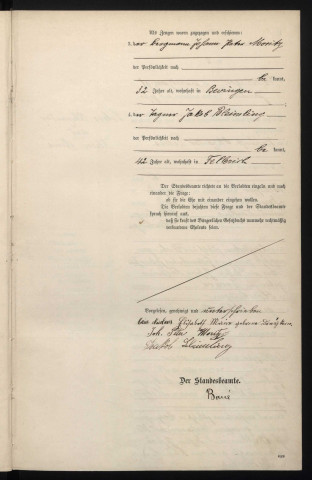 Als Zeugen waren zugezogen und erschienen:
3. der Bergmann Johann Peter Moritz
der Persönlichkeit nach
be kannt,
32 Jahre alt, wohnhaft in
4. der Tagner Jakob
der Persönlichkeit nach
be kannt,
42 Jahre alt, wohnhaft in
Der Standesbeamte richtete an die Verlobten einzeln und nach
einander die Frage:
ob sie die Ehe mit einander eingehen wollen.
Die Verlobten bejahten diese Frage und der Standesbeamte
sprach hierauf aus,
daß sie kraft des Bürgerlichen Gesetzbuchs nunmehr rechtmäßig
verbundene Eheleute seien.
Vorgelesen, genehmigt und unterschrieben
Elisabeth geborene
Joh. Peter Moritz
Jakob
Der Standesbeamte.